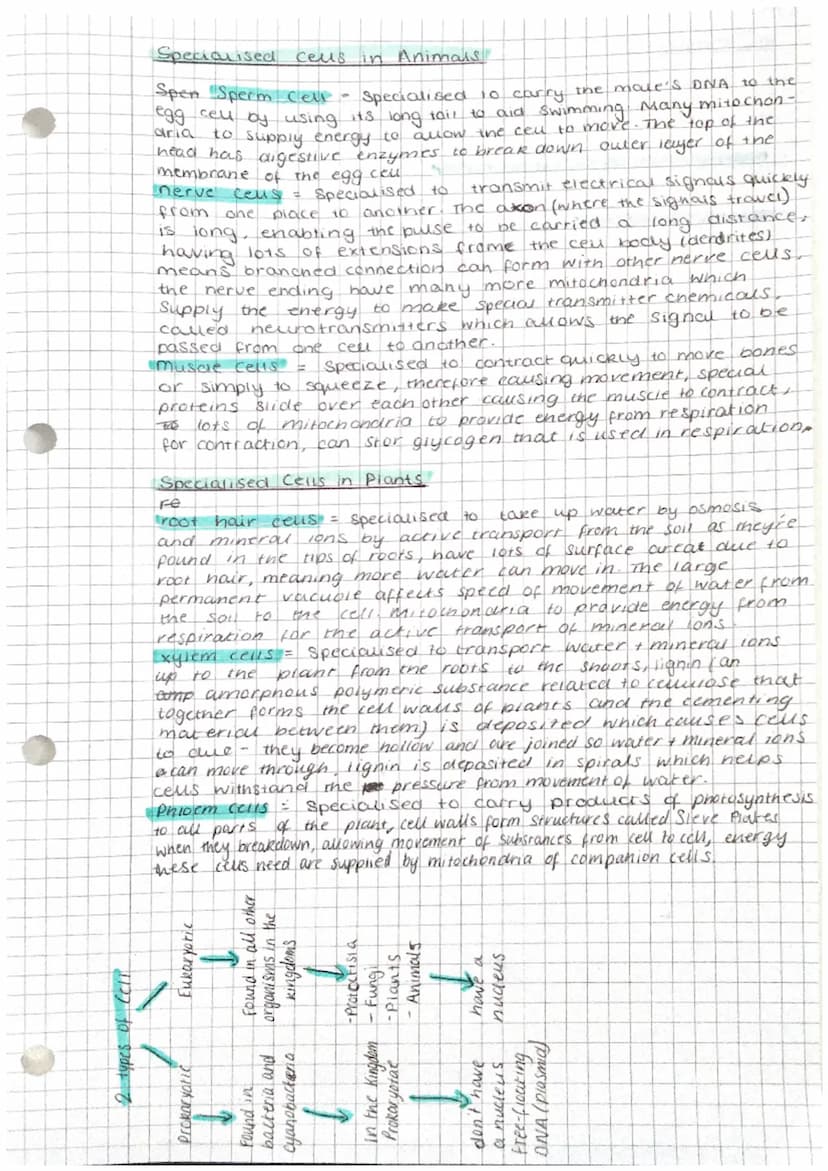 Specialised cells in Animals
Spen Sperm Cell - Specialised to carry the male's DNA to the
egg cell by using its long tail to aid swimming. Many mitochon-
dria to supply energy to allow the cell to move. The top of the
head has digestive enzymes to break down outer layer of the
membrane of the egg cell
nerve cells = Specialised to transmit electrical signals quickly
from one place to another. The axon (where the signals travel)
is long, enabling the pulse to be carried a long distance,
having lots of extensions frome the cell body (dendrites)
means branched connection can form with other nerve cells.
the nerve ending have many more mitochondria which
supply the energy to make special transmitter chemicals.
called neurotransmitters which allows the signal to be
passed from one cell to another.
Muscle cells = Specialised to contract quickly to move bones
or simply to squeeze, therefore causing movement, special
proteins slide over each other causing the muscle to contract,
to lots of mitochondria to provide energy from respiration
for contraction, can stor glycogen that is used in respiration.
Specialised Cells in Plants
Fe
root hair cells = specialised to take up water by osmosis
and mineral ions by active transport from the soil as they're
found in the tips of roots, have lots of surface areat due to
root hair, meaning more water can move in. The large
permanent vacuole affects speed of movement of water from
the soil to the cell. mitochondria to provide energy from
respiration for the active transport of mineral ions.
xylem cells = Specialised to transport water + mineral ions
up to the plant from the roots to the shoots, lignin (an
amp amorphous polymeric substance related to cellulose that
together forms the cell walls of plants and the cementing
material between them) is deposited which causes cells
to die - they become hollow and are joined so water + mineral ions
can move through. lignin is deposited in spirals which helps
cells withstand the pressure from movement of water.
Phloem cells = Specialised to carry products of photosynthesis
to all parts of the plant, cell walls form structures called Sieve Plates
when they breakdown, allowing movement of substances from cell to cell, energy
these cells need are supplied by mitochondria of companion cells.
2 types of cell
Prokaryotic
Found in
bacteria and
cyanobacteria
in the Kingdom
Prokaryotae
don't have
a nucleus
free-floating
DNA (plasmid)
Eukaryotic
Found in all other
organisms in the
kingdoms
- Protoctisia
- Fungi
- Plants
- Animals
have a
nucleus